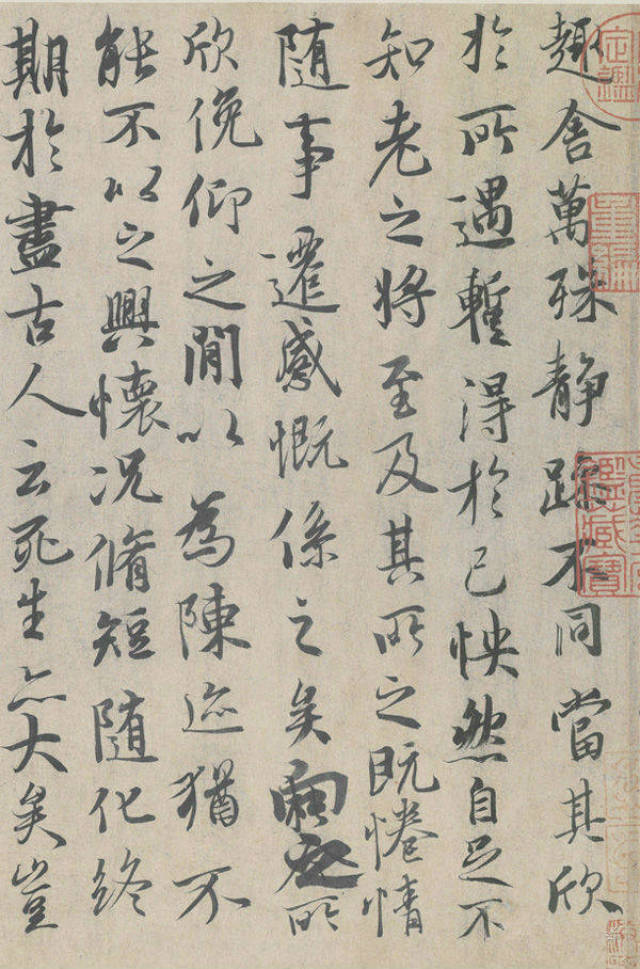 趣舍萬殊静躁不同當其欣
於所遇蹔得於己怏然自足不
知老之將至及其所之既惓情
随事遷感慨係之矣向之所
欣俛仰之閒以為陳迹猶不
能不以之興懷况脩短随化終
期於盡古人云死生亦大矣豈
定鑑
重編
鑑藏寶